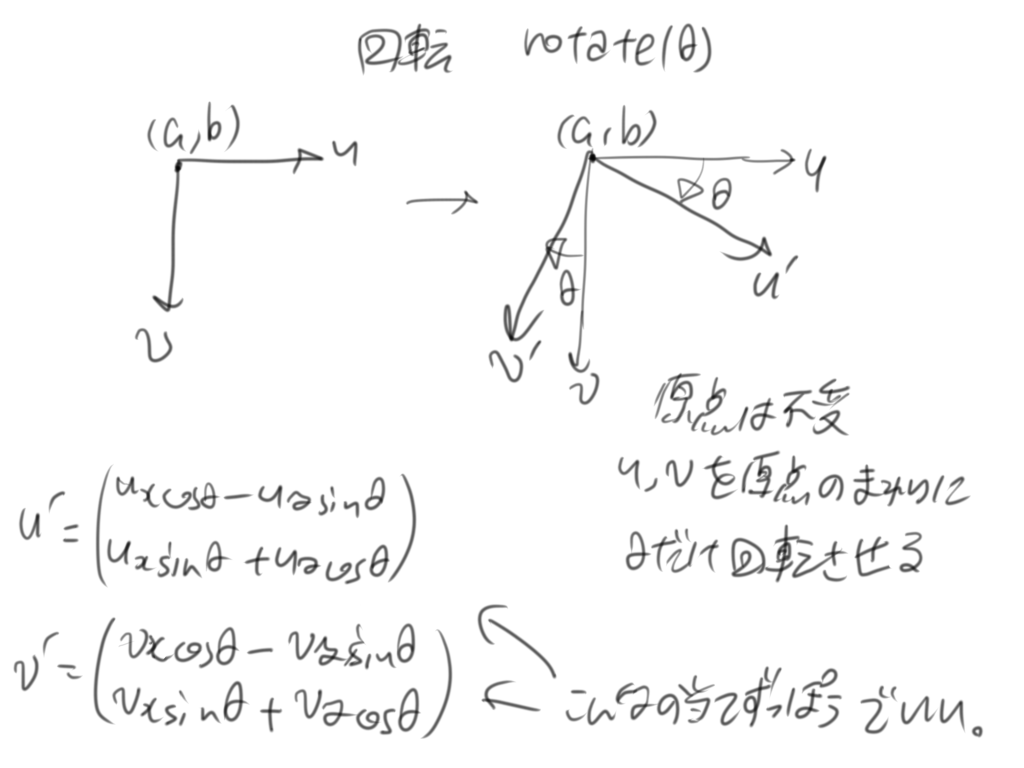 回転 rotate(θ)
(a,b)
u
v
→
(a,b)
u
θ
u'
θ
v'
v
原点は不変
u,vを原点のまわりに
θだけ回転させる
u' = (uxcosθ - uysinθ
uxsinθ + uycosθ)
v' = (vxcosθ - vysinθ
vxsinθ + vycosθ)
こんなの当てずっぽうでいい。